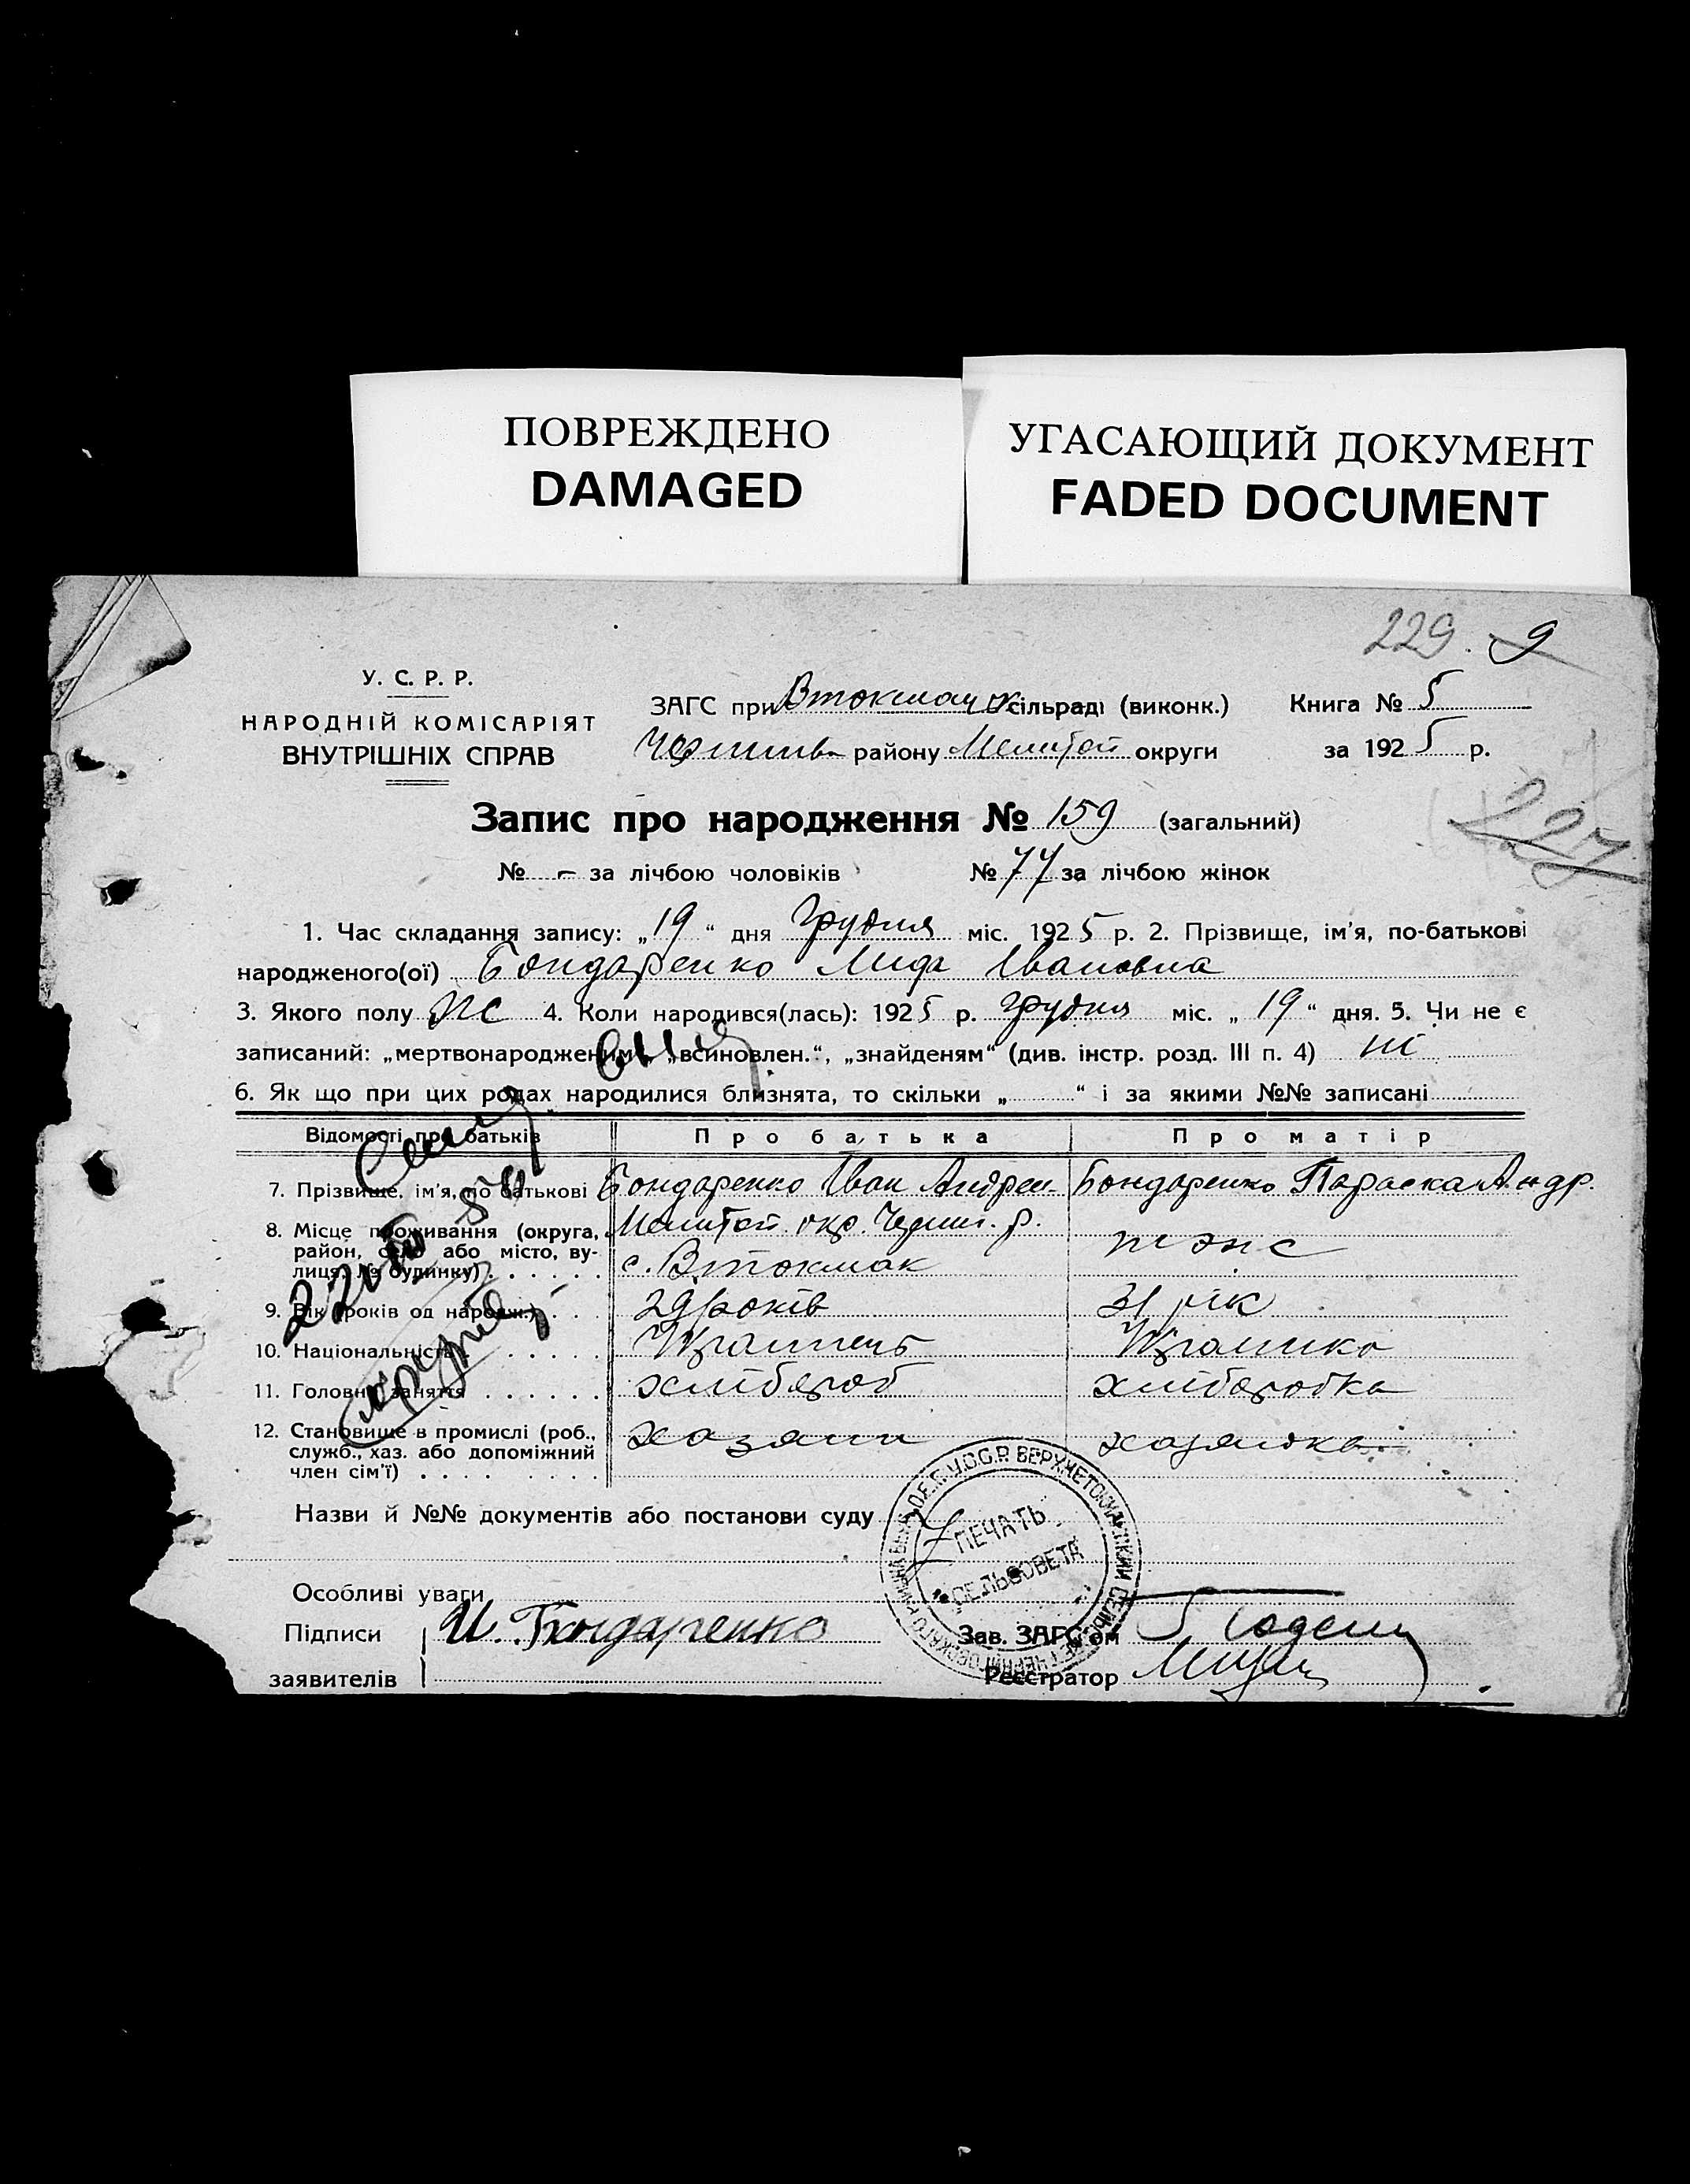 ПОВРЕЖДЕНО
DAMAGED
УГАСАЮЩИЙ ДОКУМЕНТ
FADED DOCUMENT
229. 9
У. С. Р. Р.
НАРОДНІЙ КОМІСАРІЯТ
ВНУТРІШНІХ СПРАВ
ЗАГС при Втокмацьк сільраді (виконк.)
району Мелитоп округи
Книга № 5
за 1925 р.
227
Запис про народження № 159 (загальний)
№ - за лічбою чоловіків
№ 77 за лічбою жінок
1. Час складання запису: „19“ дня Грудня міс. 1925 р. 2. Прізвище, ім'я, по-батькові
народженого(ої) Бондаренко Лида Ивановна
3. Якого полу Ж 4. Коли народився(лась): 1925 р. Грудня міс. „19“ дня. 5. Чи не є
записаний: „мертвонародженим“, „всиновлен.“, „знайденям“ (див. інстр. розд. III п. 4) ні
6. Як що при цих родах народилися близнята, то скільки „ “ і за якими №№ записані
Відомості про батьків
Про батька
Про матір
7. Прізвище, ім'я, по батькові Бондаренко Иван Андрее Бондаренко Параска Андр.
8. Місце проживання (округа, район, село або місто, вулиця, № будинку) Мелитоп окр. Черниг. р. с. Втокмак тоже
9. Вік (років од народж.) 29 років 31 рік
10. Національність Українець Українка
11. Головне заняття хлібороб хліборобка
12. Становище в промислі (роб., служб., хаз. або допоміжний член сім'ї) хазяин хазяйка
Назви й №№ документів або постанови суду
ПЕЧАТЬ
СЕЛЬСОВЕТА
Особливі уваги
Підписи
заявителів
И. Бондаренко
Зав. ЗАГС'ом
Реєстратор